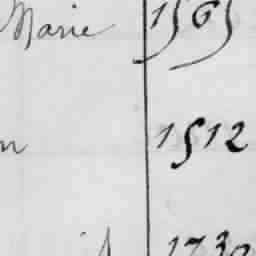 Marie 1565
n 1512